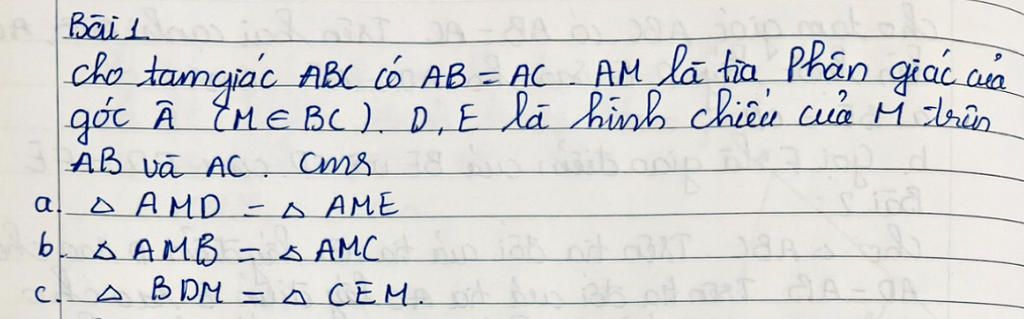 Bài 1.
Cho tam giác ABC có AB = AC. AM là tia Phân giác của
góc Â (M ∈ BC). D, E là hình chiếu của M trên
AB và AC. Cmr
a. △ AMD = △ AME
b. △ AMB = △ AMC
c. △ BDM = △ CEM.